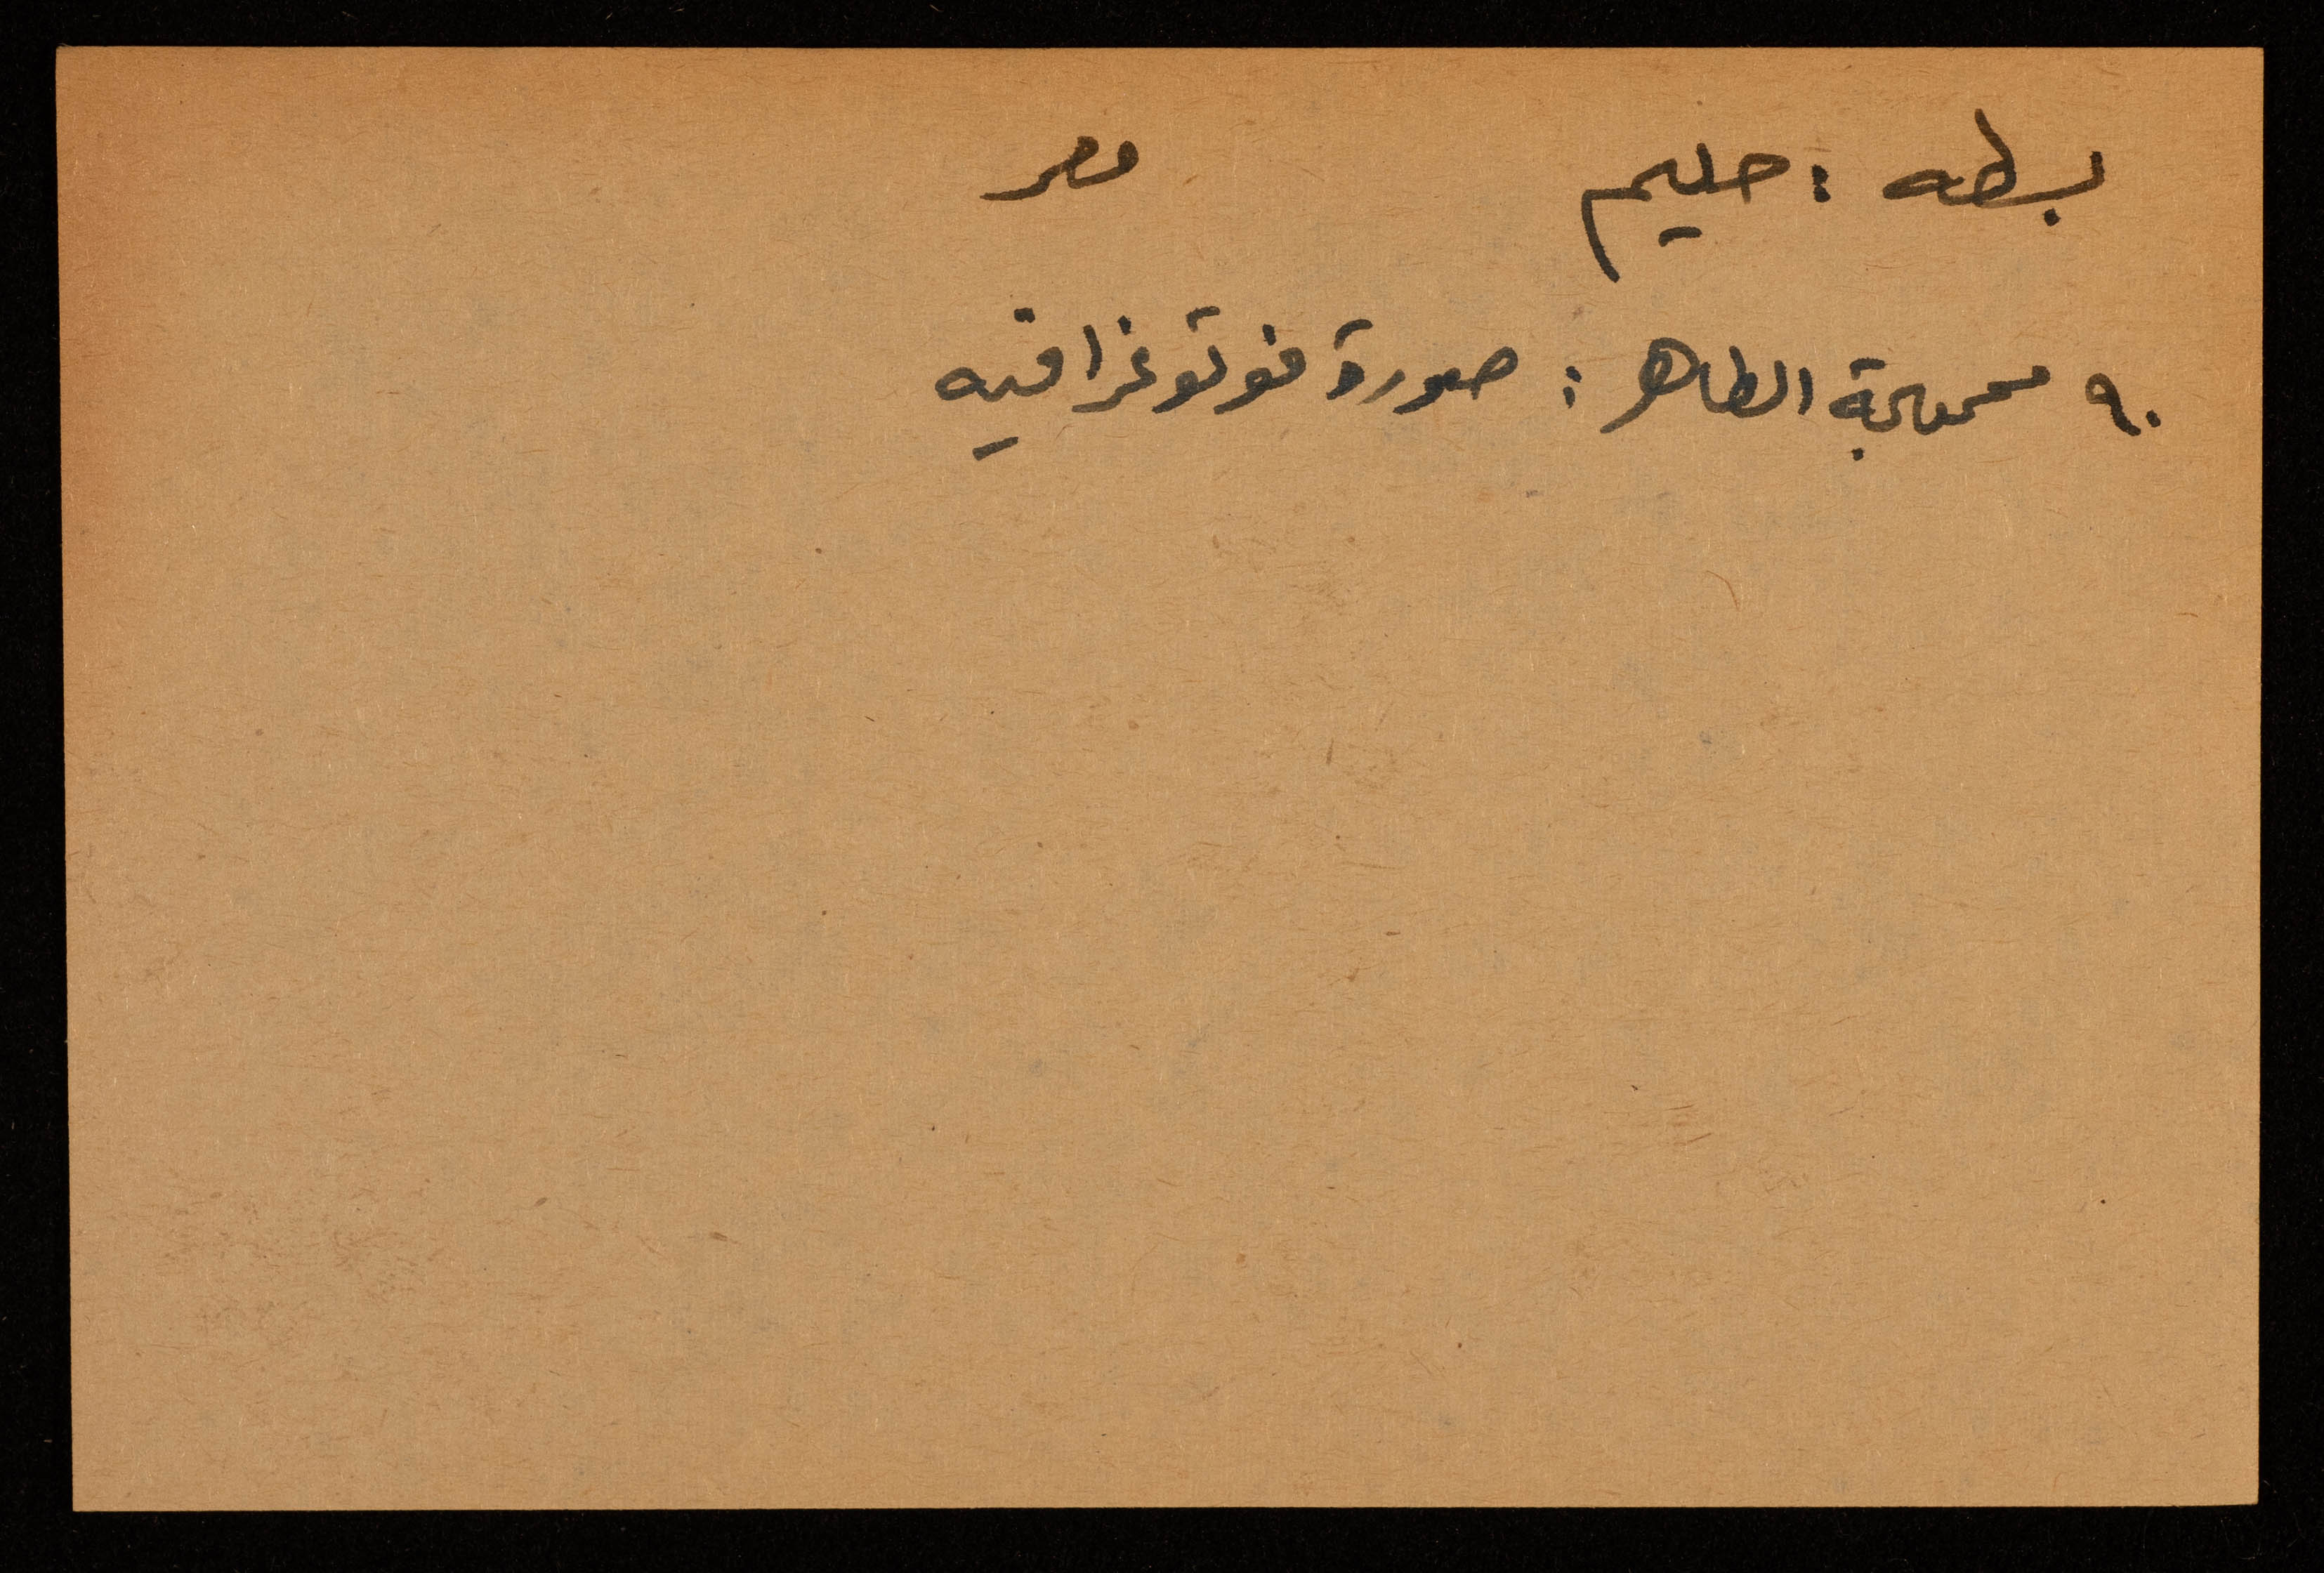 بسطه : حليم مصر
٩٠ الطاهر : صورة فوتوغرافيه